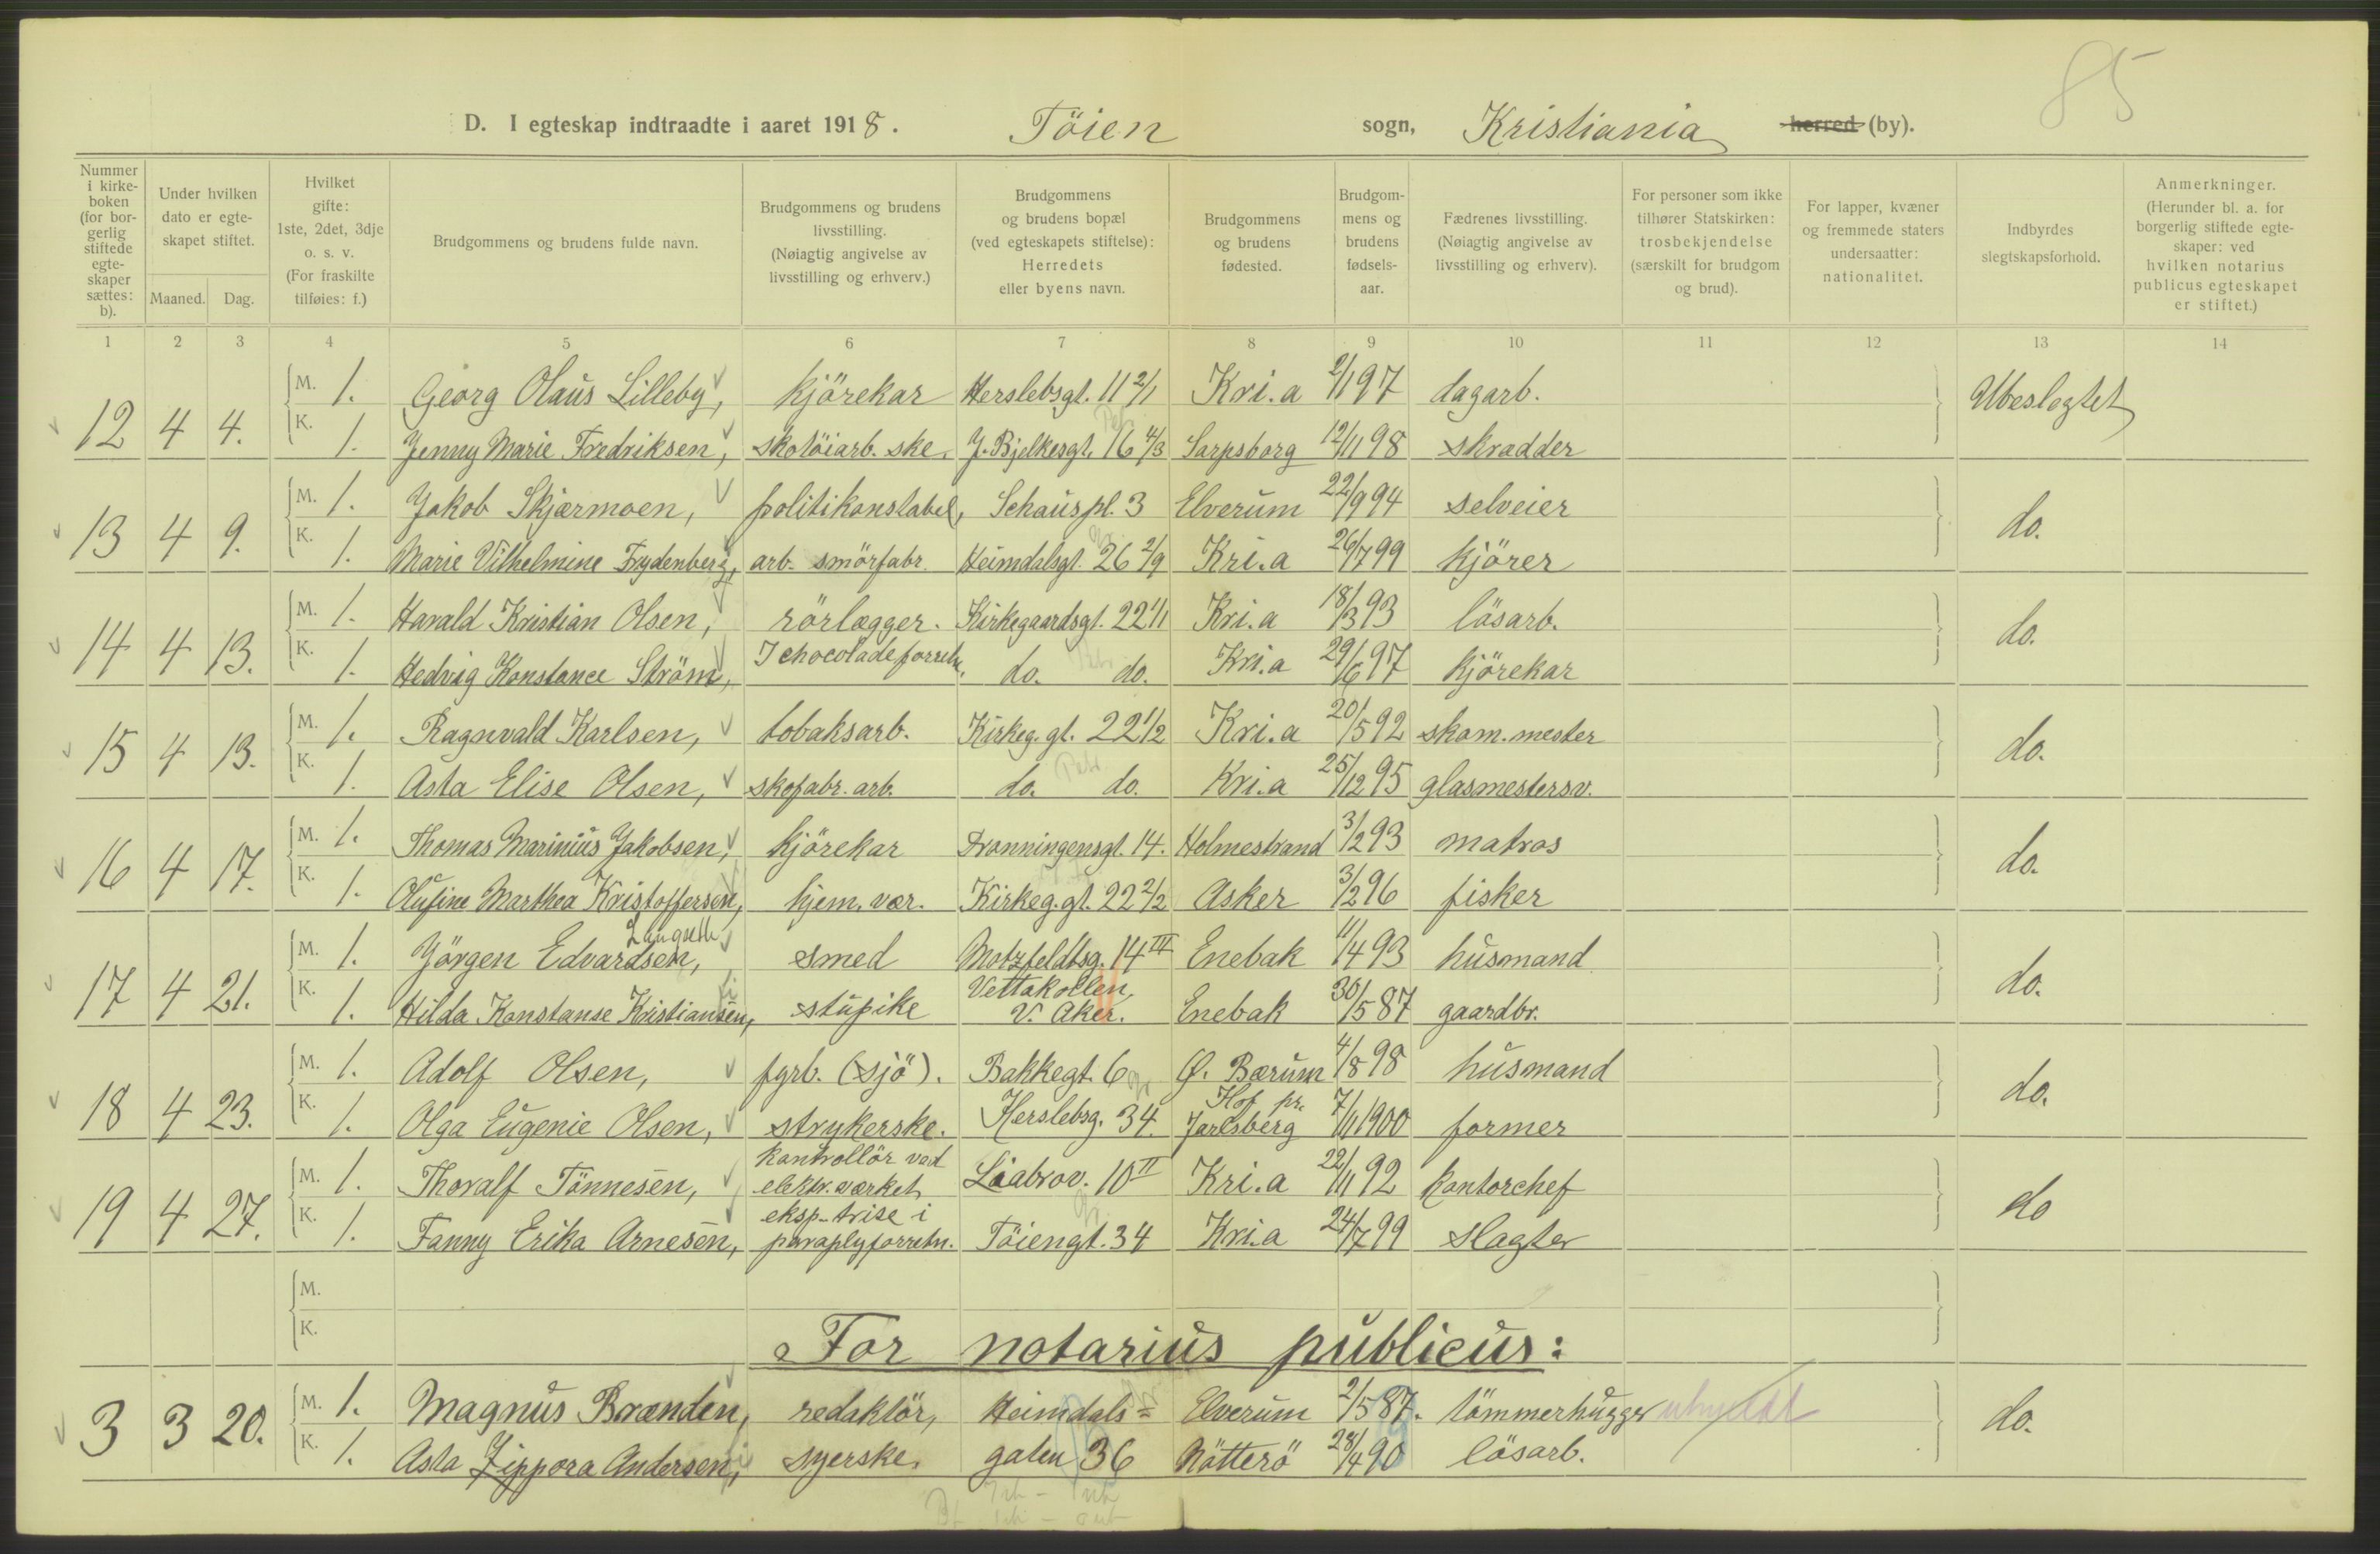 85
D. I egteskap indtraadte i aaret 1918. Töien sogn, Kristiania herred (by).
Nummer i kirke-boken (for bor-gerlig stiftede egte-skaper sættes: b).
Under hvilken dato er egte-skapet stiftet.
Maaned. Dag.
Hvilket gifte: 1ste, 2det, 3dje o. s. v. (For fraskilte tilføies: f.)
Brudgommens og brudens fulde navn.
Brudgommens og brudens livsstilling. (Nøiagtig angivelse av livsstilling og erhverv.)
Brudgommens og brudens bopæl (ved egteskapets stiftelse): Herredets eller byens navn.
Brudgommens og brudens fødested.
Brudgom-mens og brudens fødsels-aar.
Fædrenes livsstilling. (Nøiagtig angivelse av livsstilling og erhverv).
For personer som ikke tilhører Statskirken: trosbekjendelse (særskilt for brudgom og brud).
For lapper, kvæner og fremmede staters undersaatter: nationalitet.
Indbyrdes slegtskapsforhold.
Anmerkninger. (Herunder bl. a. for borgerlig stiftede egte-skaper: ved hvilken notarius publicus egteskapet er stiftet.)
1 2 3 4 5 6 7 8 9 10 11 12 13 14
12 4 4. M. 1. Georg Olaus Lilleby, kjörekar Herslebsgt. 11 2/1 Kri.a 2/1 97 dagarb. Ubeslegtet
K. 1. Jenny Marie Fredriksen, skotöiarb.ske. J. Bjelkesgt. 16 4/3 Sarpsborg 12/11 98 skradder
13 4 9. M. 1. Jakob Skjærmoen, politikonstabel, Schauspl. 3 Elverum 22/9 94 selveier do.
K. 1. Marie Vilhelmine Frydenberg, arb. smörfabr. Heimdalsgt. 26 2/9 Kri.a 26/7 99 kjörer
14 4 13. M. 1. Harald Kristian Olsen, rörlægger. Kirkegaardsgt. 22 1/1 Kri.a 18/3 93 lösarb. do.
K. 1. Hedvig Konstance Ström, I chocoladeforretn. do. do. Kri.a 29/6 97 kjörekar
15 4 13. M. 1. Ragnvald Karlsen, tobaksarb. Kirkeg.gt. 22 1/2 Kri.a 20/5 92 skom.mester do.
K. 1. Asta Elise Olsen, skofabr. arb. do. do. Kri.a 25/12 95 glasmestersv.
16 4 17. M. 1. Thomas Marinius Jakobsen, kjörekar Dronningensgt. 14. Holmestrand 3/12 93 matros do.
K. 1. Olufine Marthea Kristoffersen, hjem. vær. Kirkeg.gt. 22 2/2 Asker 3/2 96 fisker
Langseth
17 4 21. M. 1. Jörgen Edvardsen, smed Motzfeldtsg. 14 III Enebak 11/4 93 husmand do.
K. 1. Hilda Konstanse Kristiansen, stupike Vettakollen, V. Aker. Enebak 30/5 87 gaardbr.
18 4 23. M. 1. Adolf Olsen, fyrb. (sjö). Bakkegt. 6 Ø. Bærum 4/8 98 husmand do.
K. 1. Olga Eugenie Olsen, strykerske. Herslebsg. 34. Hof pr. Jarlsberg 7/11 1900 former
19 4 27. M. 1. Thoralf Tönnesen, kontrollör ved elektr.værket Liabrov. 10 II Kri.a 22/11 92 kontorchef do
K. 1. Fanny Erika Arnesen, eksp.trise i paraplyforretn. Töiengt. 34 Kri.a 24/7 99 slagter
M.
K.
For notarius publicus:
3 3 20. M. 1. Magnus Brænden, redaktör, Heimdals= Elverum 2/5 87. tömmerhugger do.
K. 1. Asta Zippora Andersen, syerske, gaten 36 Nötterö 28/4 90 lösarb.